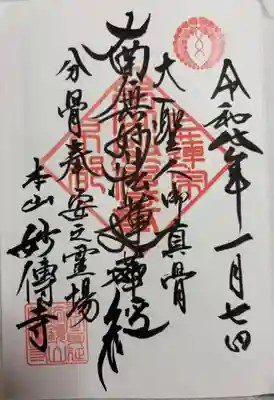 令和 年一月七日
大聖人御真骨
南無妙法蓮華経
分骨奉安之霊場
本山 妙傳寺